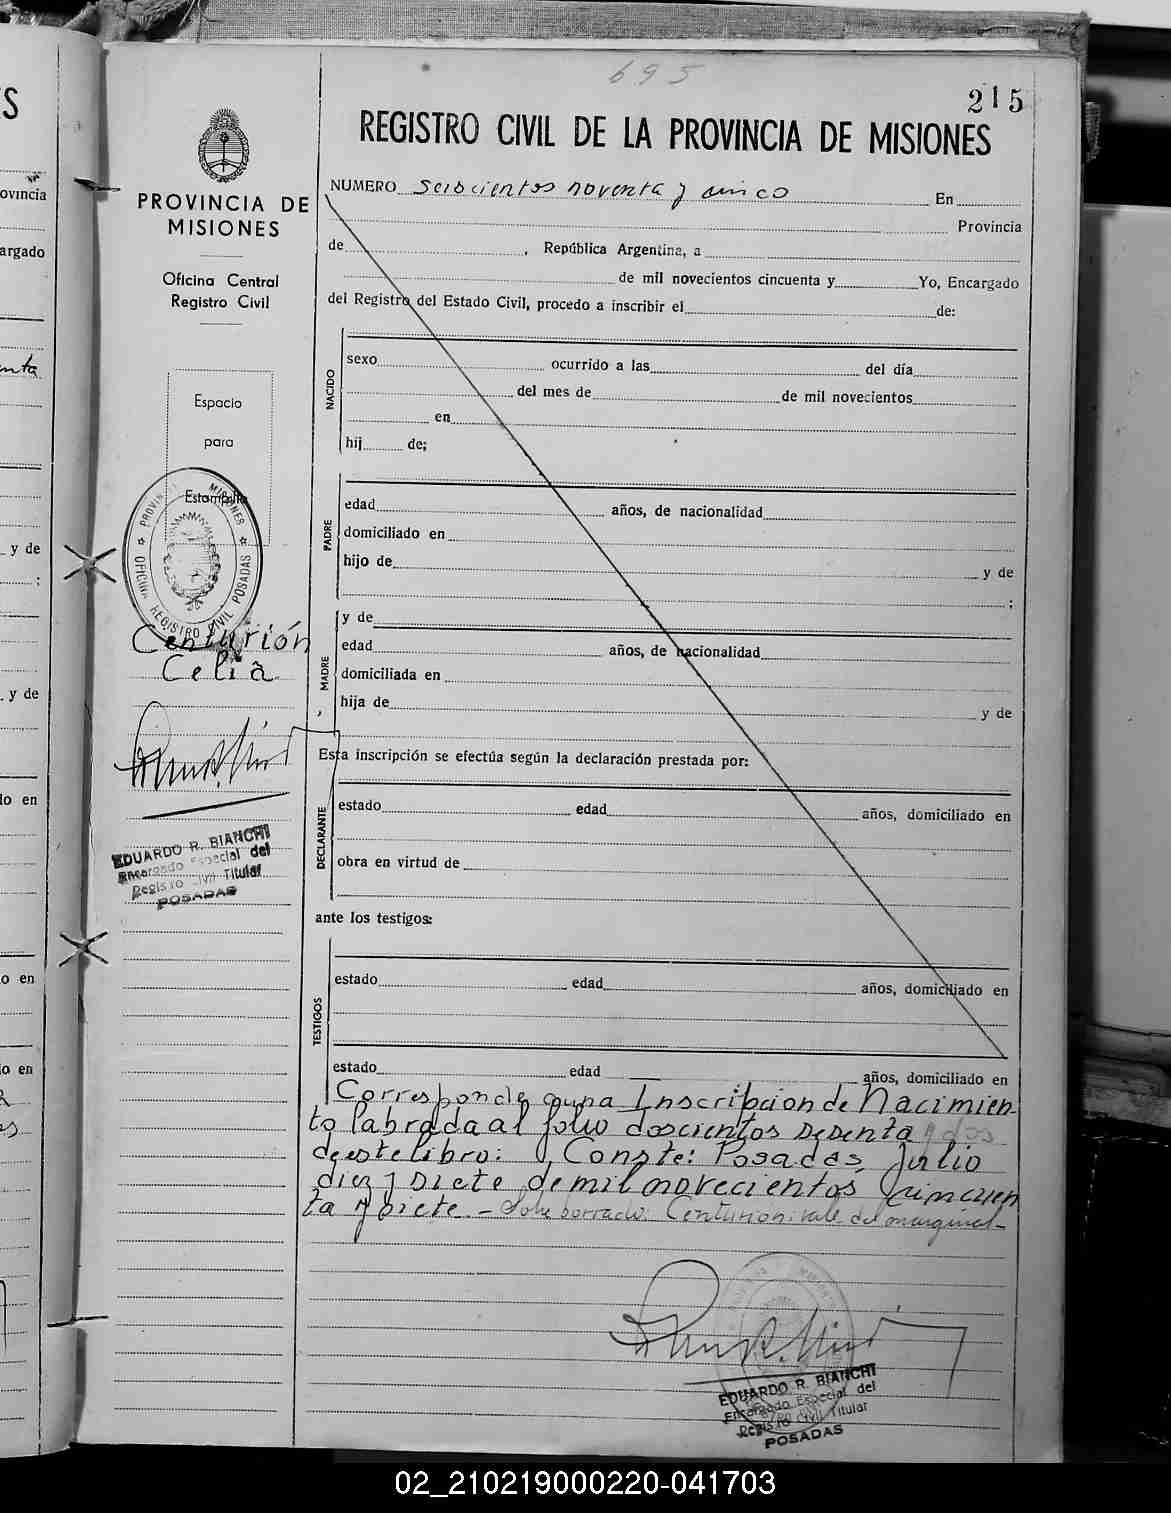 695
215
REGISTRO CIVIL DE LA PROVINCIA DE MISIONES
PROVINCIA DE
MISIONES
Oficina Central
Registro Civil
Espacio
para
Estampilla
PROVINCIA MISIONES
OFICINA REGISTRO CIVIL POSADAS
Centurión
Celia
EDUARDO R. BIANCHI
Encargado Especial del
Registro Civil Titular
POSADAS
NUMERO seiscientos noventa y cinco En
Provincia
de , República Argentina, a
de mil novecientos cincuenta y Yo, Encargado
del Registro del Estado Civil, procedo a inscribir el de:
NACIDO
sexo ocurrido a las del día
del mes de de mil novecientos
en
hij de;
PADRE
edad años, de nacionalidad
domiciliado en
hijo de y de
;
MADRE
y de
edad años, de nacionalidad
domiciliada en
hija de y de
Esta inscripción se efectúa según la declaración prestada por:
DECLARANTE
estado edad años, domiciliado en
obra en virtud de
ante los testigos:
TESTIGOS
estado edad años, domiciliado en
estado edad años, domiciliado en
Corresponde a una Inscripcion de Nacimien-
to labrada al folio doscientos sesenta y dos
de este libro: Conste: Posadas, Julio
diez y siete de mil novecientos cincuen
ta y siete. - Sobre borrado: Centurion: vale del marginal-
EDUARDO R. BIANCHI
Encargado Especial del
Registro Civil Titular
POSADAS
S
ovincia
argado
nta
y de
;
y de
lo en
o en
o en
02_210219000220-041703